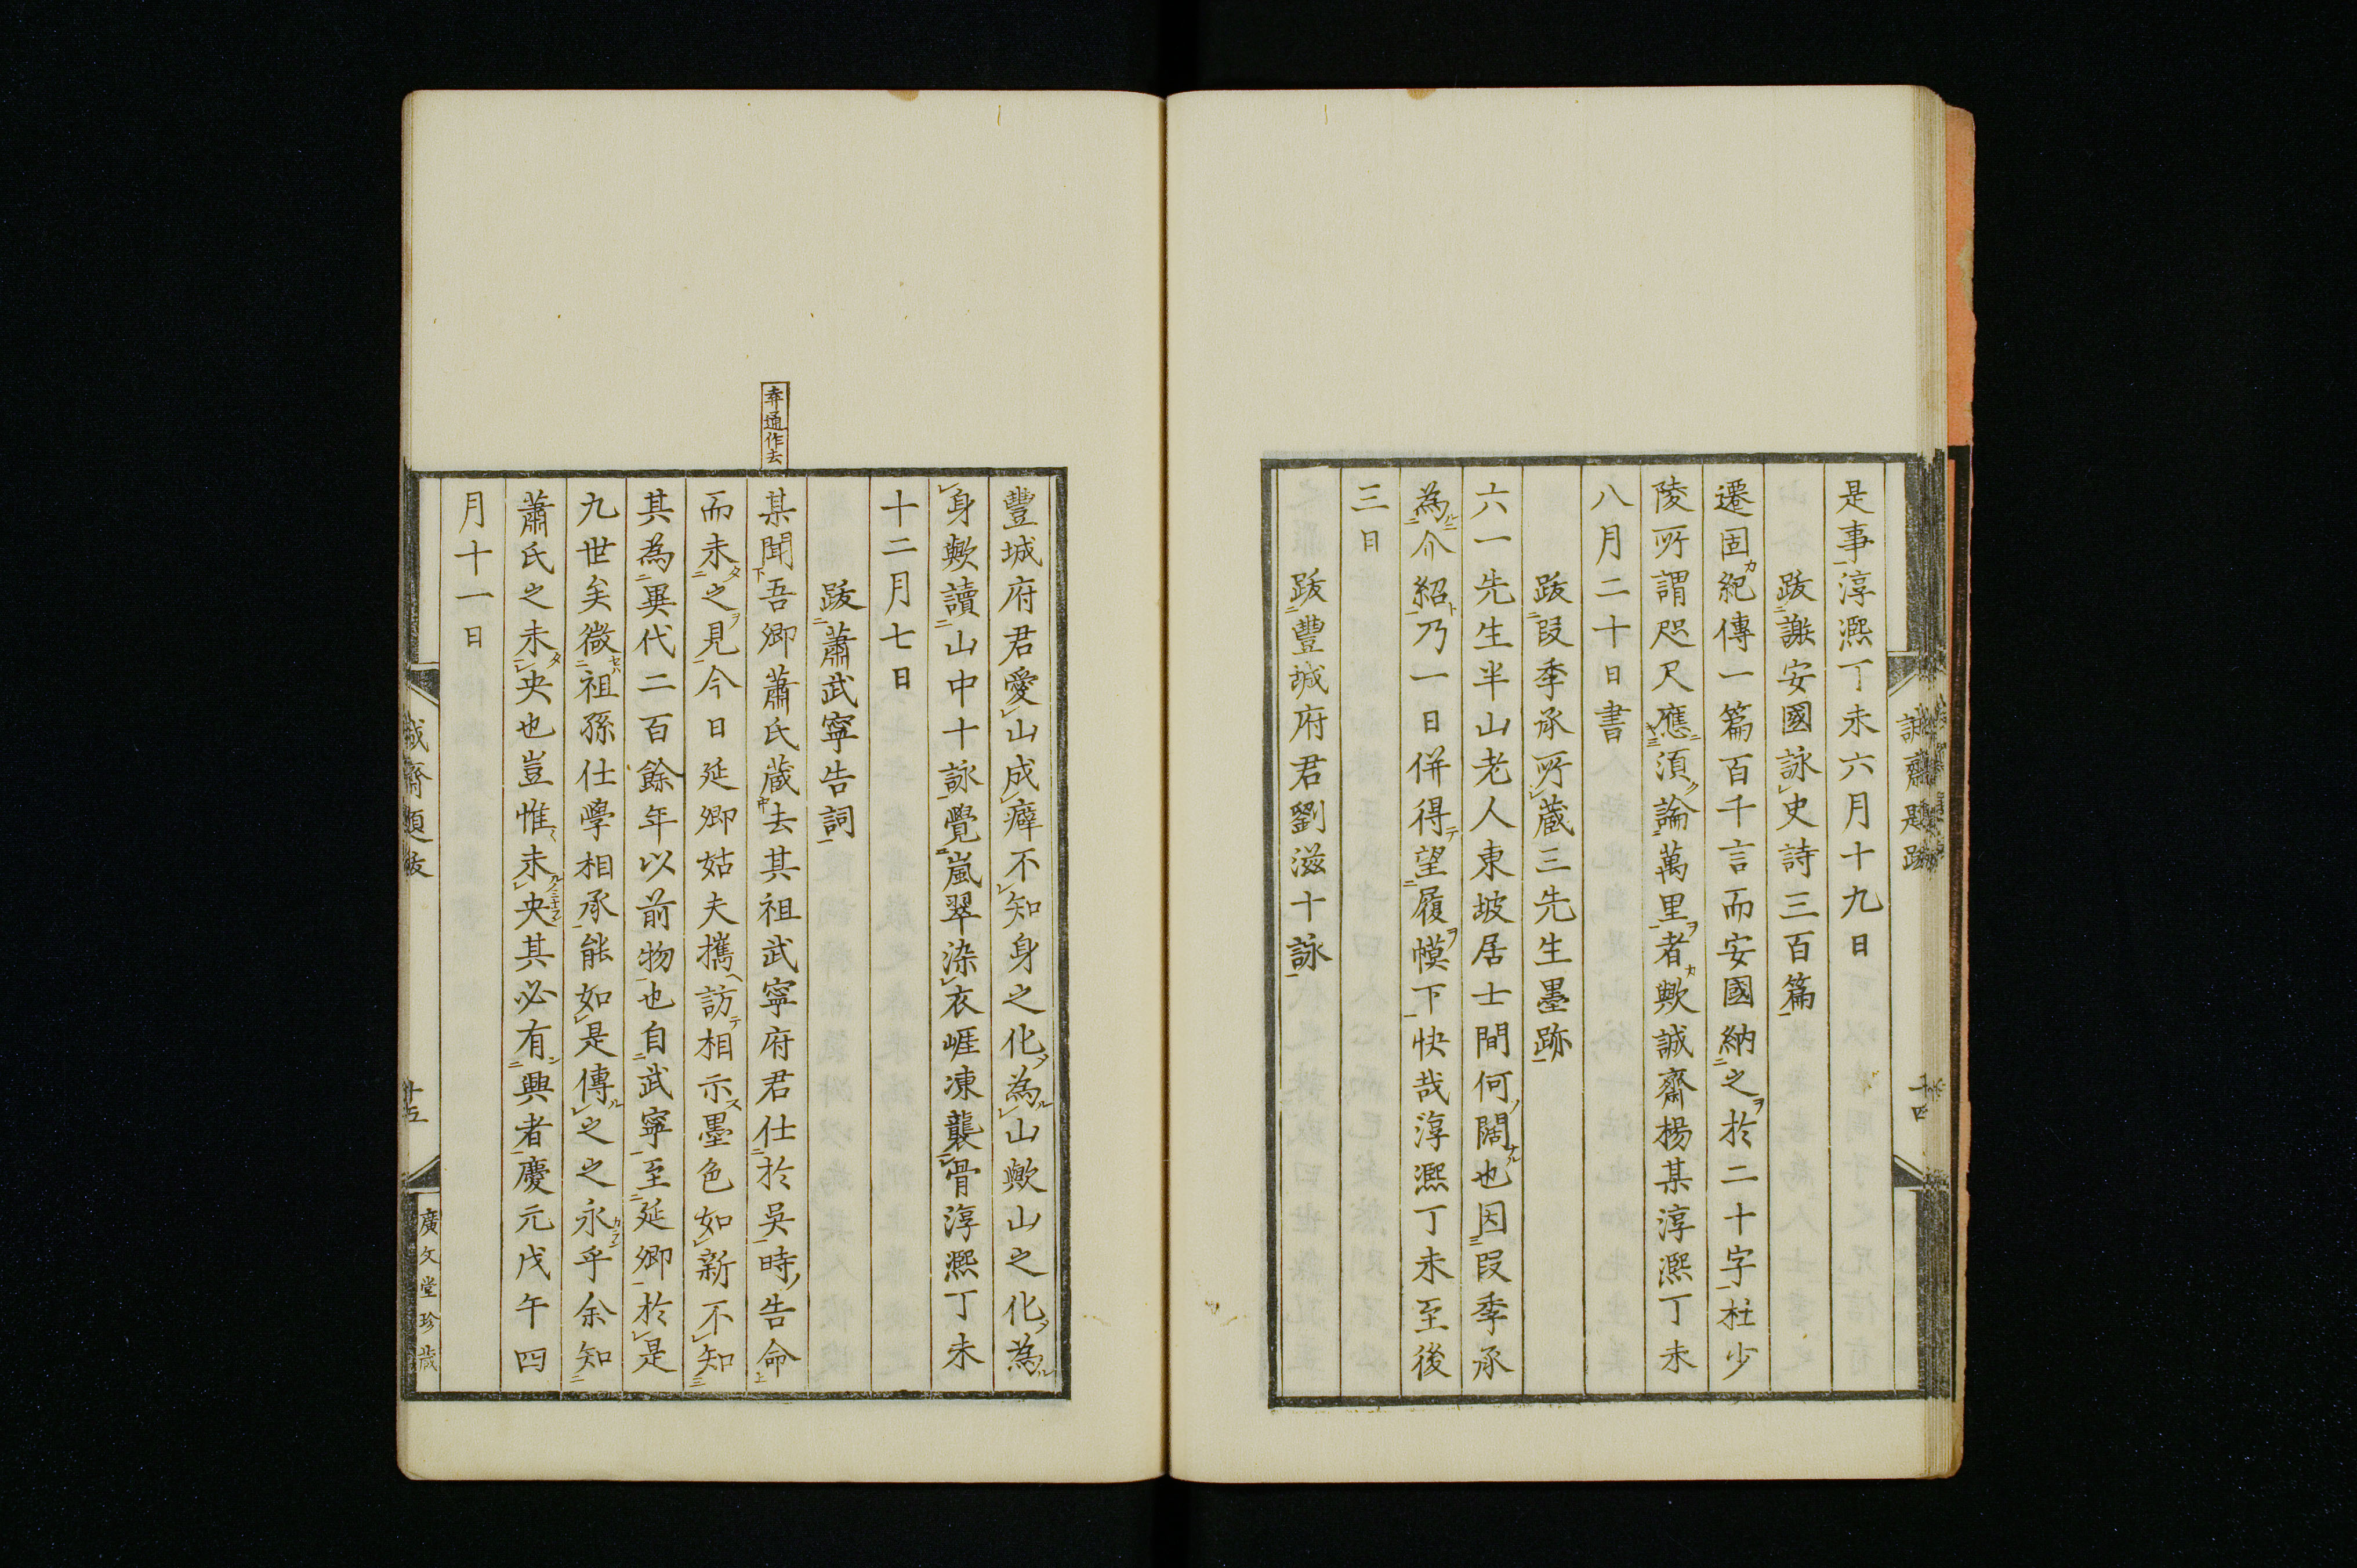 是事淳熙丁未六月十九日
跋謝安國詠史詩三百篇
遷固紀傳一篇百千言而安國納之於二十字杜少
陵所謂咫尺應須論萬里者歟誠齋楊某淳熙丁未
八月二十日書
跋段季承所藏三先生墨跡
六一先生半山老人東坡居士間何闊也因段季承
為介紹乃一日併得望履幙下快哉淳熙丁未至後
三日
跋豐城府君劉滋十詠
豐城府君愛山成癖不知身之化為山歟山之化為
身歟讀山中十詠覺嵐翠染衣崕凍襲骨淳熙丁未
十二月七日
跋蕭武寧告詞
弆通作去
某聞吾鄉蕭氏蔵去其祖武寧府君仕於吳時告命
而未之見今日延卿姑夫攜訪相示墨色如新不知
其為異代二百餘年以前物也自武寧至延卿於是
九世矣微祖孫仕學相承能如是傳之之永乎余知
蕭氏之未央也豈惟未央其必有興者慶元戊午四
月十一日
誠齋題跋
十五
廣文堂珍蔵